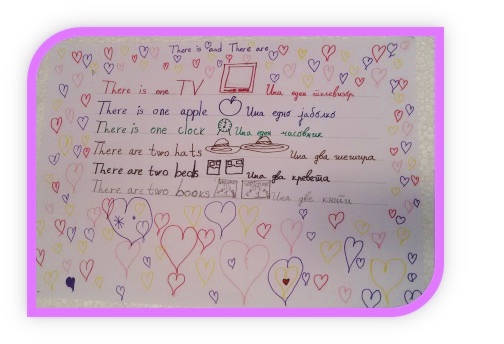 There is and There are
There is one TV Има еден телевизор
There is one apple Има едно јаболко
There is one clock Има еден часовник
There are two hats Има два шешира
There are two beds Има два кревета
There are two books Има две книги